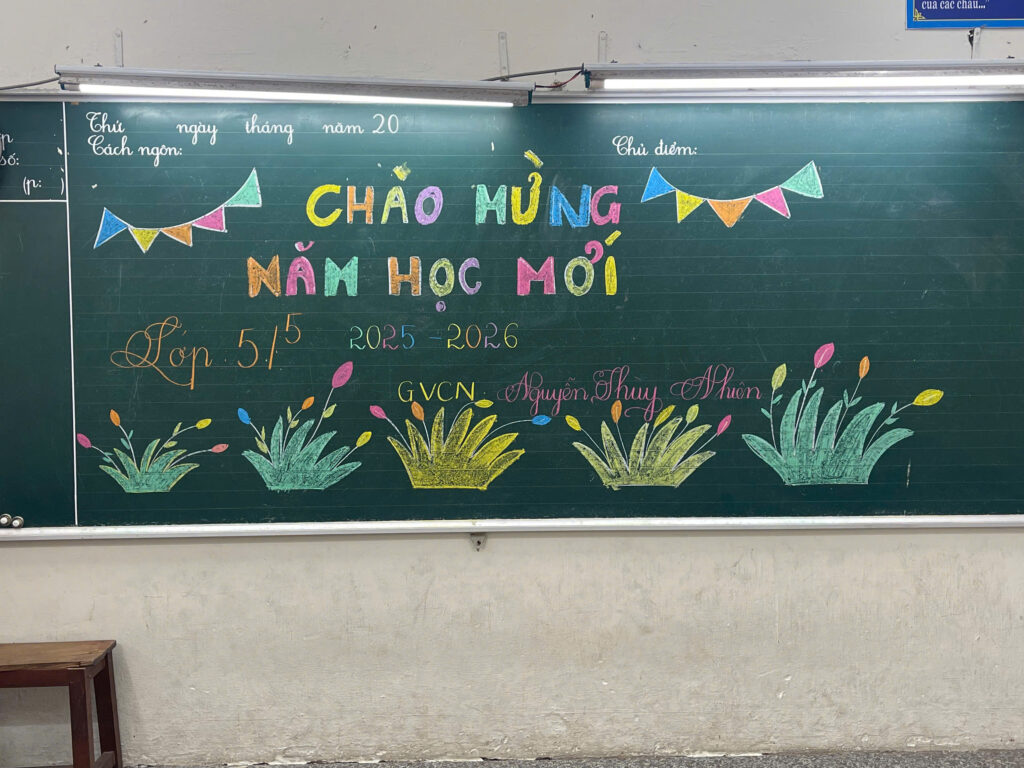 của các cháu..."
Thứ ngày tháng năm 20
Cách ngôn:
Chủ điểm:
số:
(p: )
CHÀO MỪNG
NĂM HỌC MỚI
Lớp 5/5
2025 - 2026
GVCN Nguyễn Thùy Nhiên